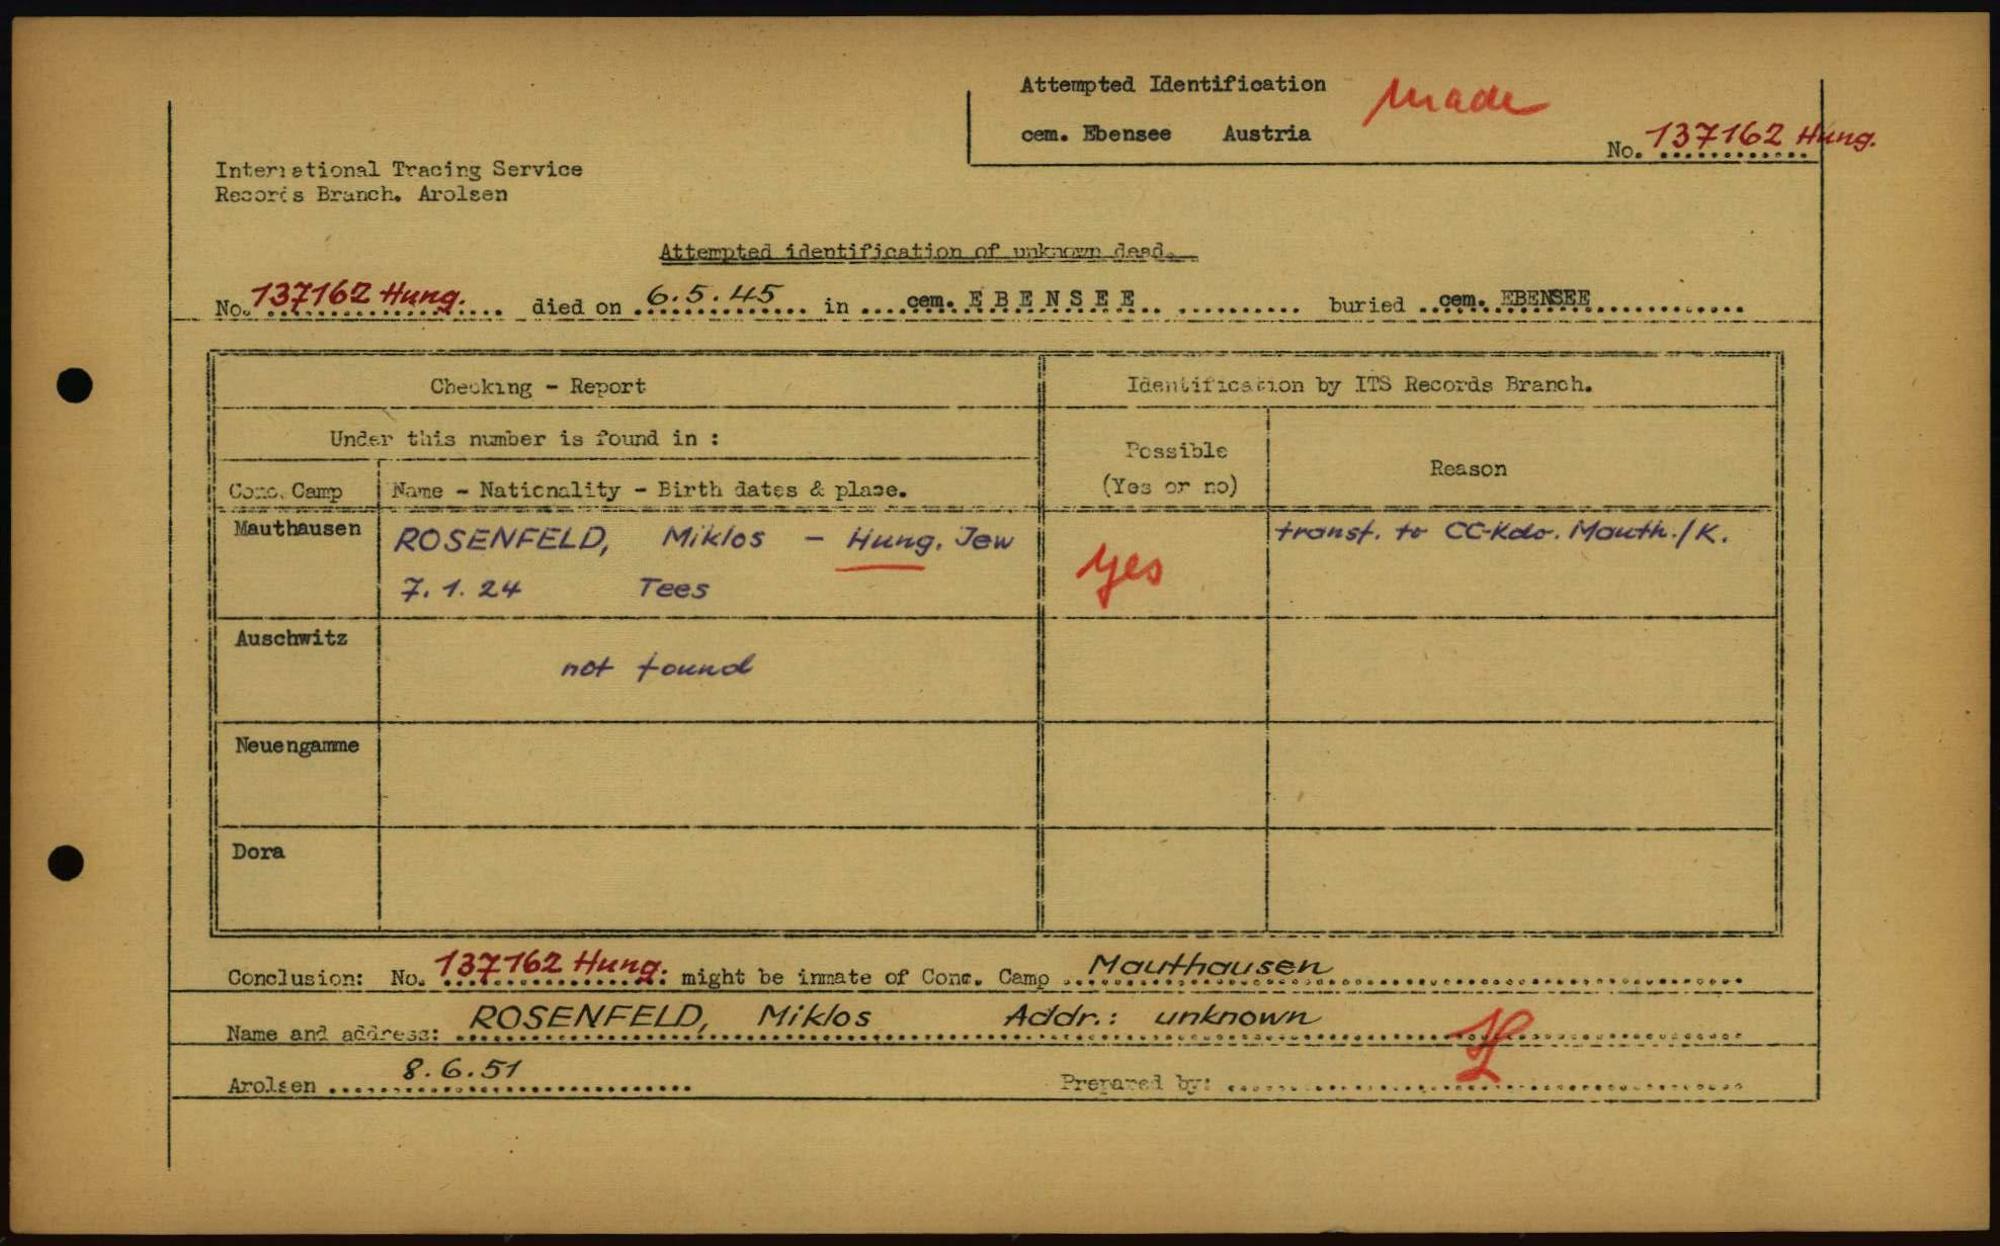 Attempted Identification made
cem. Ebensee Austria
No. 137162 Hung.
International Tracing Service
Records Branch. Arolsen
Attempted identification of unknown dead.
No. 137162 Hung. died on 6.5.45 in cem. EBENSEE buried cem. EBENSEE
Checking - Report
Identification by ITS Records Branch.
Under this number is found in :
Possible
(Yes or no)
Reason
Conc. Camp Name - Nationality - Birth dates & place.
Mauthausen ROSENFELD, Miklos - Hung. Jew yes transf. to CC-Kdo. Mauth./K.
7.1.24 Tees
Auschwitz
not found
Neuengamme
Dora
Conclusion: No. 137162 Hung. might be inmate of Conc. Camp Mauthausen
Name and address: ROSENFELD, Miklos Addr.: unknown
Arolsen 8.6.51 Prepared by: